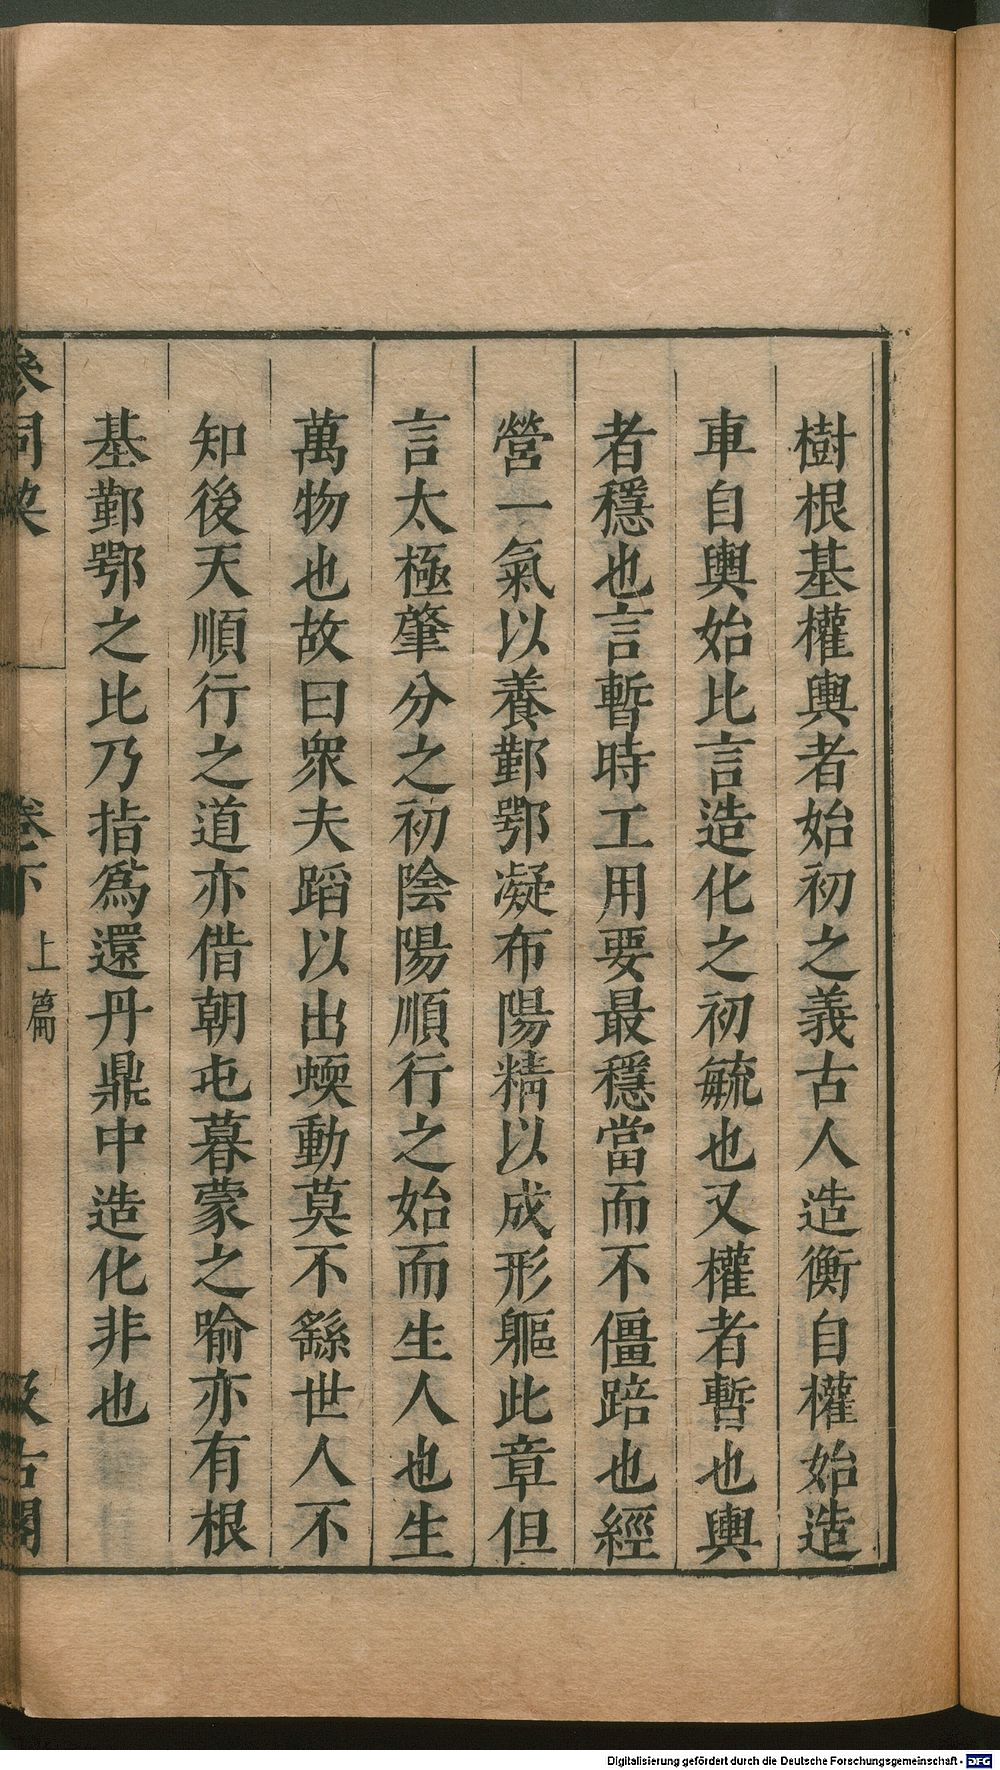 樹根基權輿者始初之義古人造衡自權始造
車自輿始比言造化之初毓也又權者暫也輿
者穩也言暫時工用要最穩當而不僵踣也經
營一氣以養鄞鄂凝布陽精以成形軀此章但
言太極肇分之初陰陽順行之始而生人也生
萬物也故曰眾夫蹈以出蝡動莫不繇世人不
知後天順行之道亦借朝屯暮蒙之喻亦有根
基鄞鄂之比乃指爲還丹鼎中造化非也
參同契 卷下 上篇 汲古閣
Digitalisierung gefördert durch die Deutsche Forschungsgemeinschaft - DFG